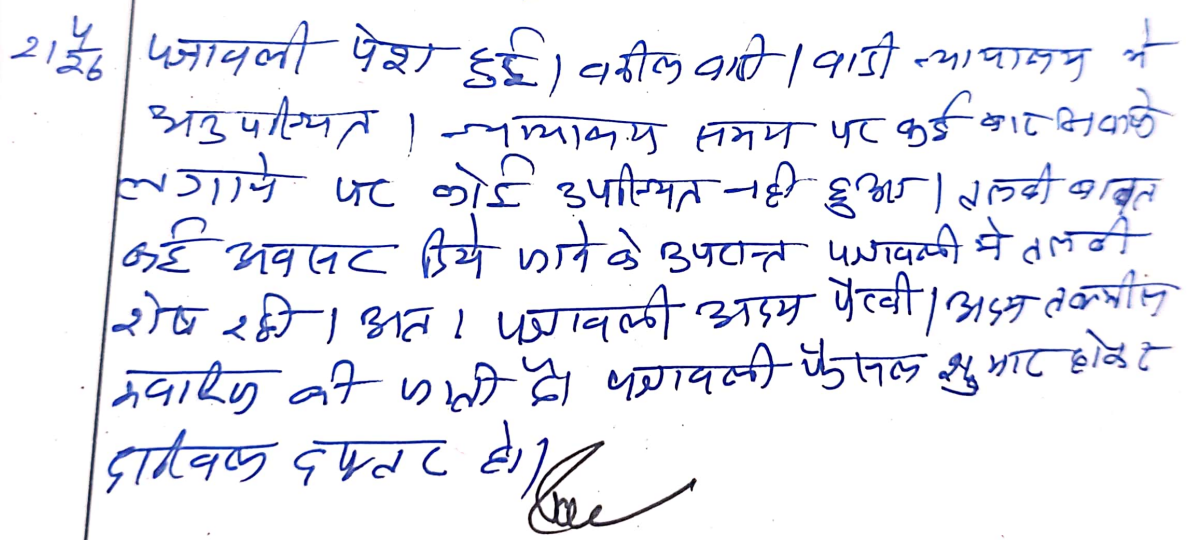 21/4/26 पत्रावली पेश हुई। वकील वादी / वादी न्यायालय मे
अनुपस्थित । न्यायालय समय पर कई बार आवाजे
लगाने पर कोई उपस्थित नही हुआ। तलबी बाबत
कई अवसर दिये जाने के उपरान्त पत्रावली मे तलबी
शेष रही । अतः पत्रावली अदम पैरवी / अदम तकमील
खारिज की जाती है। पत्रावली फैसल शुमार होकर
दाखिल दफ्तर हो।